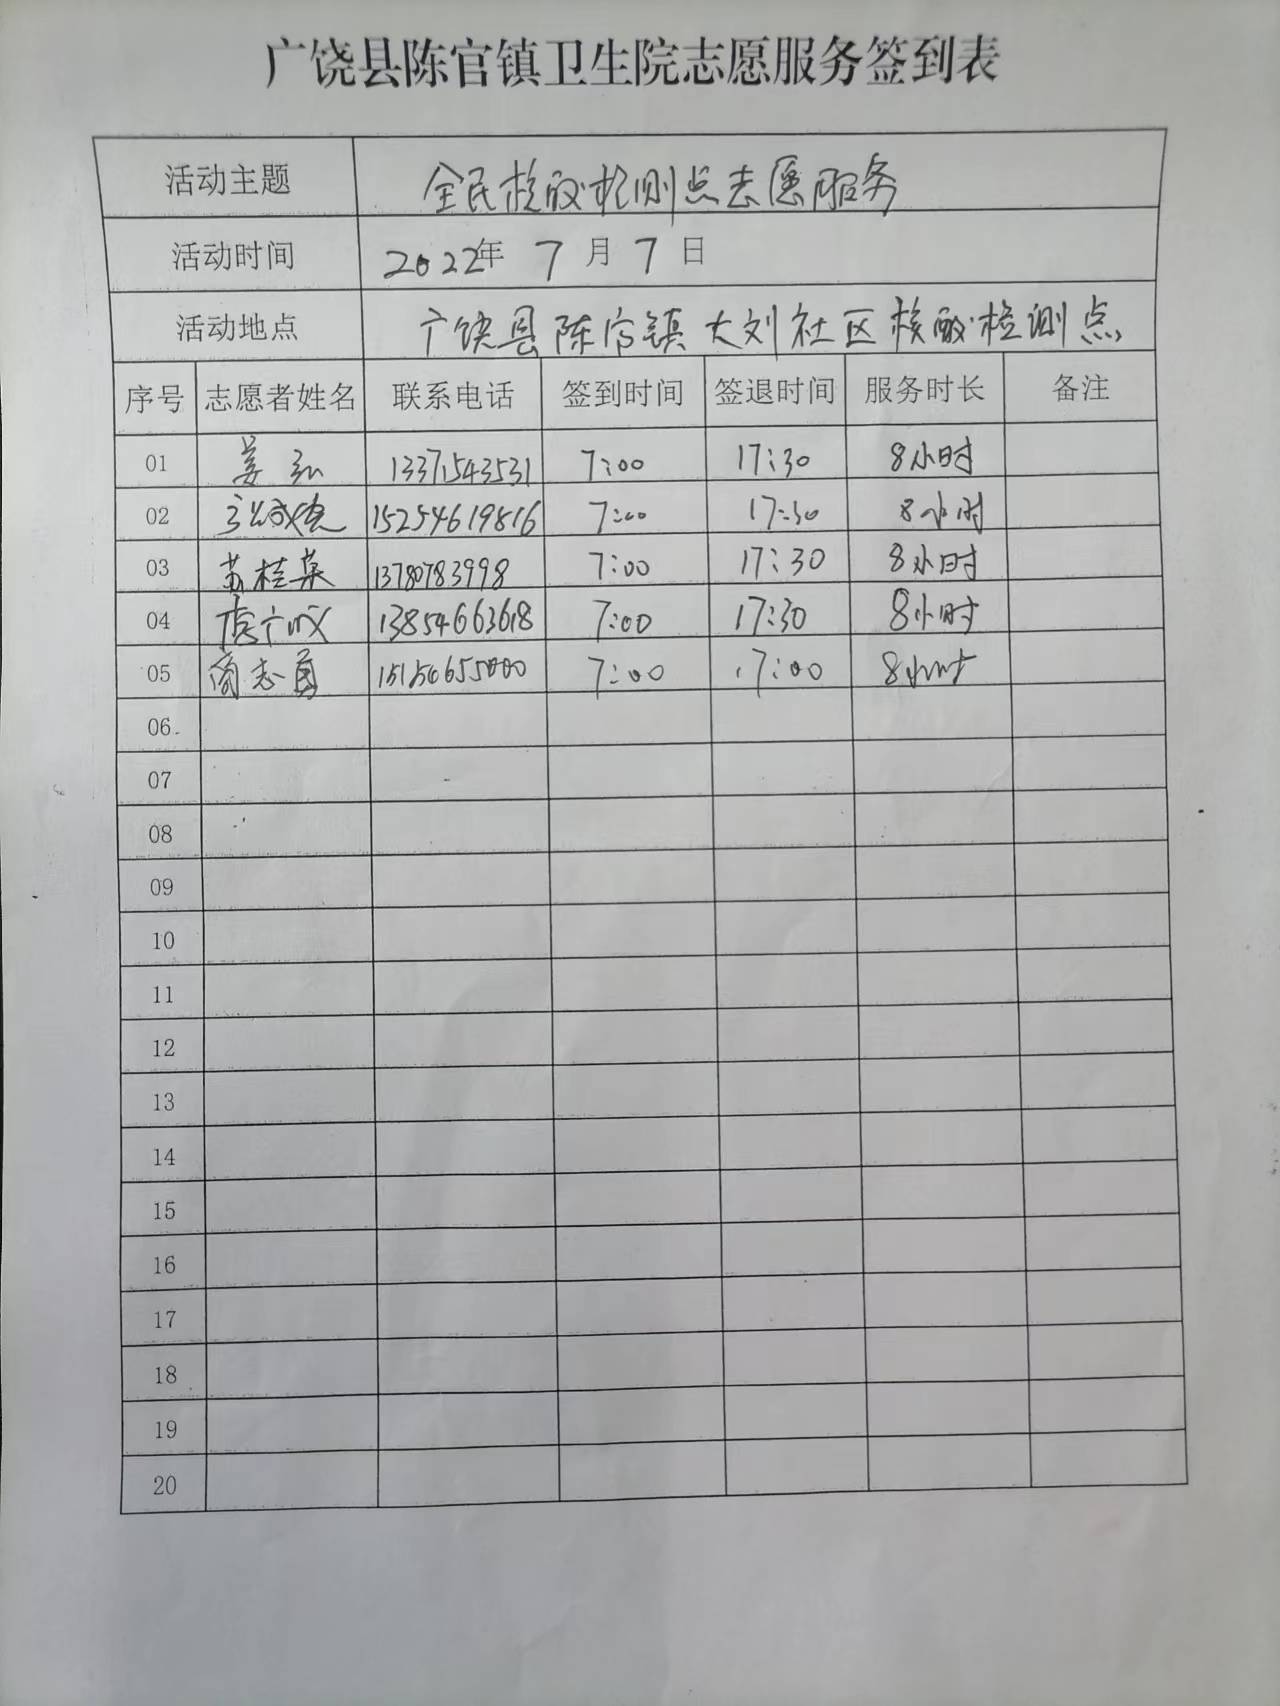 广饶县陈官镇卫生院志愿服务签到表
活动主题 全民核酸检测点志愿服务
活动时间 2022年 7 月 7 日
活动地点 广饶县陈官镇大刘社区核酸检测点
序号 志愿者姓名 联系电话 签到时间 签退时间 服务时长 备注
01 姜 13371543531 7:00 17:30 8小时
02 15254619816 7:00 17:30 8小时
03 苏桂英 13780783998 7:00 17:30 8小时
04 13854663618 7:00 17:30 8小时
05 商志勇 7:00 17:00 8小时
06
07
08
09
10
11
12
13
14
15
16
17
18
19
20